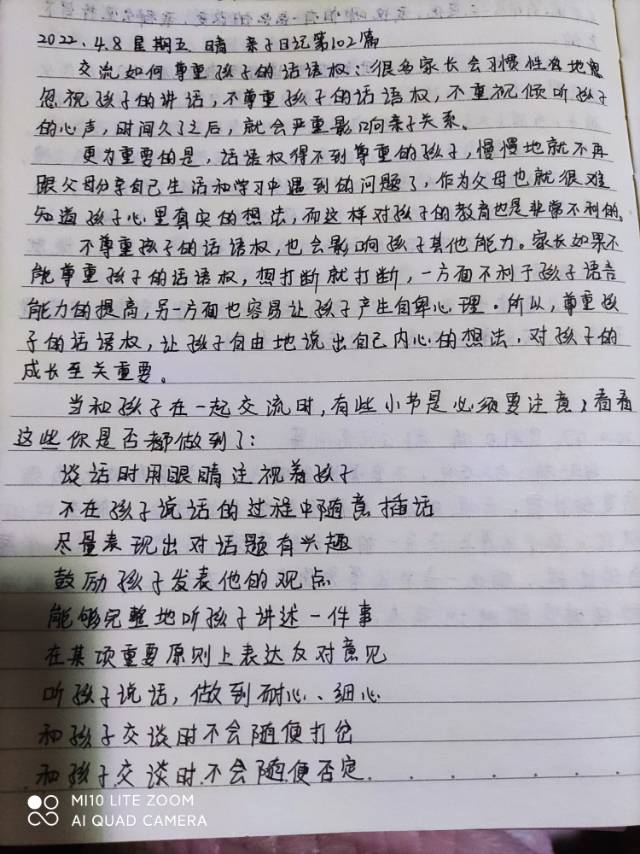 2022.4.8 星期五 晴 亲子日记第102篇
交流如何尊重孩子的话语权:很多家长会习惯性有地忽
忽视孩子的讲话,不尊重孩子的话语权,不重视倾听孩子
的心声,时间久了之后,就会严重影响亲子关系。
更为重要的是,话语权得不到尊重的孩子,慢慢地就不再
跟父母分享自己生活和学习中遇到的问题了,作为父母也就很难
知道孩子心里真实的想法,而这样对孩子的教育也是非常不利的。
不尊重孩子的话语权,也会影响孩子其他能力。家长如果不
能尊重孩子的话语权,想打断就打断,一方面不利于孩子语言
能力的提高,另一方面也容易让孩子产生自卑心理。所以,尊重孩
子的话语权,让孩子自由地说出自己内心的想法,对孩子的
成长至关重要。
当和孩子在一起交流时,有些小节是必须要注意,看看
这些你是否都做到了:
谈话时用眼睛注视着孩子
不在孩子说话的过程中随意插话
尽量表现出对话题有兴趣
鼓励孩子发表他的观点
能够完整地听孩子讲述一件事
在某项重要原则上表达反对意见
听孩子说话,做到耐心、细心
和孩子交谈时不会随便打岔
和孩子交谈时不会随便否定......
MI10 LITE ZOOM
AI QUAD CAMERA